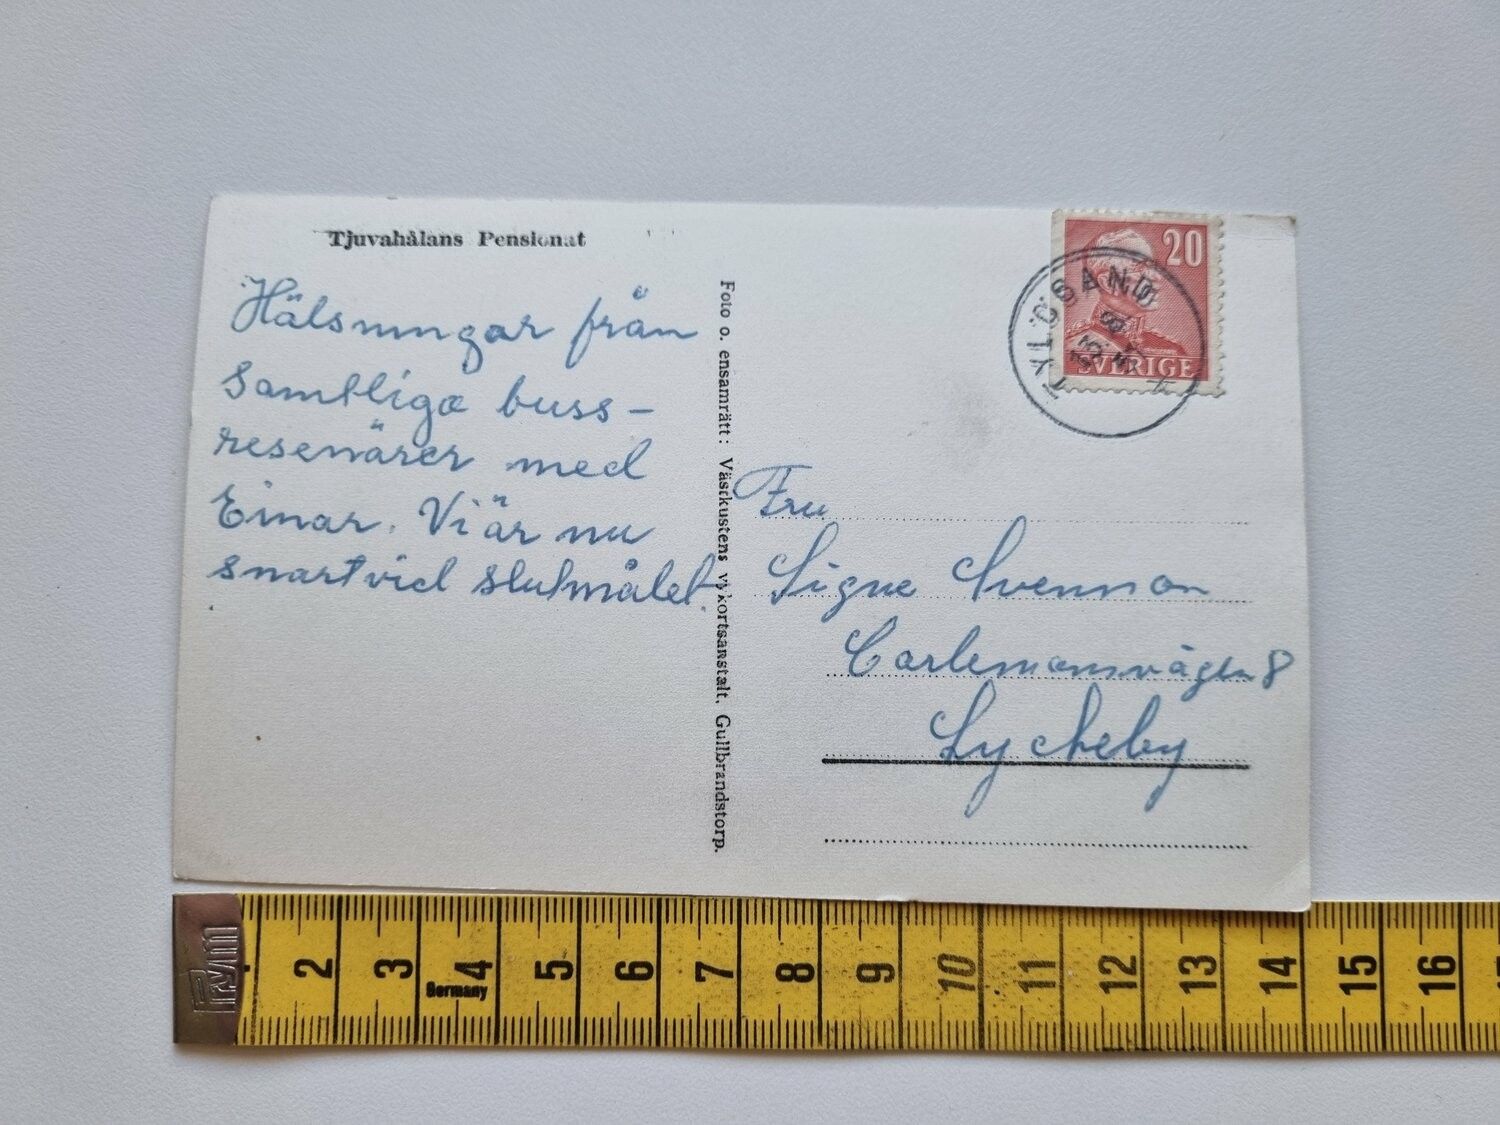 Tjuvahålans Pensionat
Hälsningar från
samtliga buss-
resenärer med
Einar. Vi är nu
snart vid slutmålet.
Foto o. ensamrätt: Västkustens vykortsanstalt. Gullbrandstorp.
20
SVERIGE
TYLÖSAND
Fru
Signe Svensson
Carlemansvägen 8
Lyckeby
Prym
Germany
2 3 4 5 6 7 8 9 10 11 12 13 14 15 16